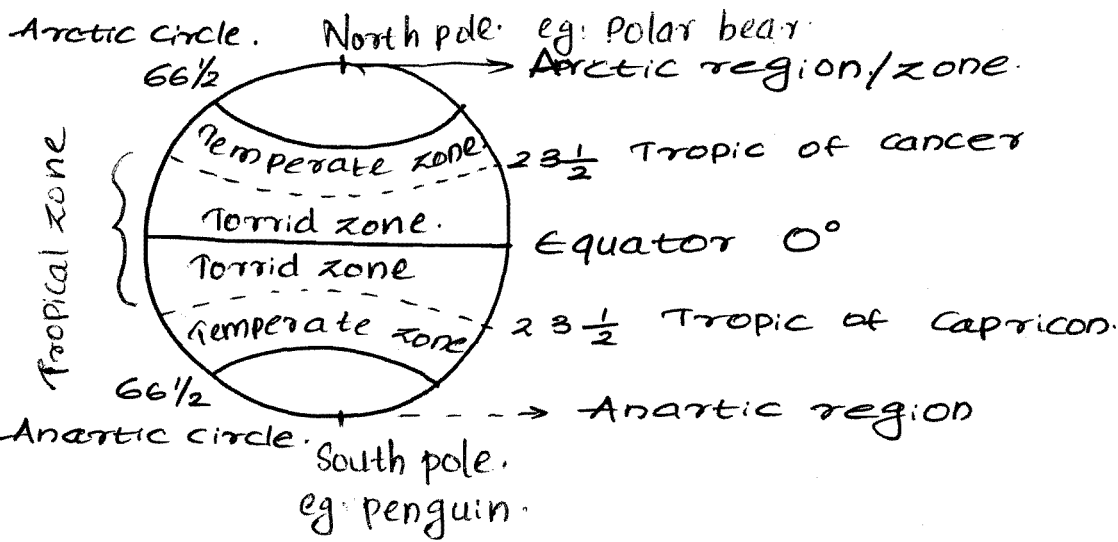 Arctic circle.
North pole. eg: Polar bear.
66½
Arctic region/zone.
Temperate zone
23½ Tropic of cancer
Tropical zone
Torrid zone.
Equator 0°
Torrid zone
Temperate zone
23½ Tropic of Capricon.
66½
Anartic region
Anartic circle.
South pole.
eg: penguin.